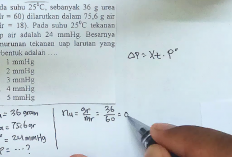 da suhu 25°C, sebanyak 36 g urea
r = 60) dilarutkan dalam 75,6 g air
r = 18). Pada suhu 25°C tekanan
p air adalah 24 mmHg. Besarnya
nurunan tekanan uap larutan yang
bentuk adalah ....
1 mmHg
2 mmHg
3 mmHg
4 mmHg
5 mmHg
ΔP = Xt · P°
= 36 gram
= 75,6 gr
= 24 mmHg
P = ...?
nu = gr/mr = 36/60 = 0